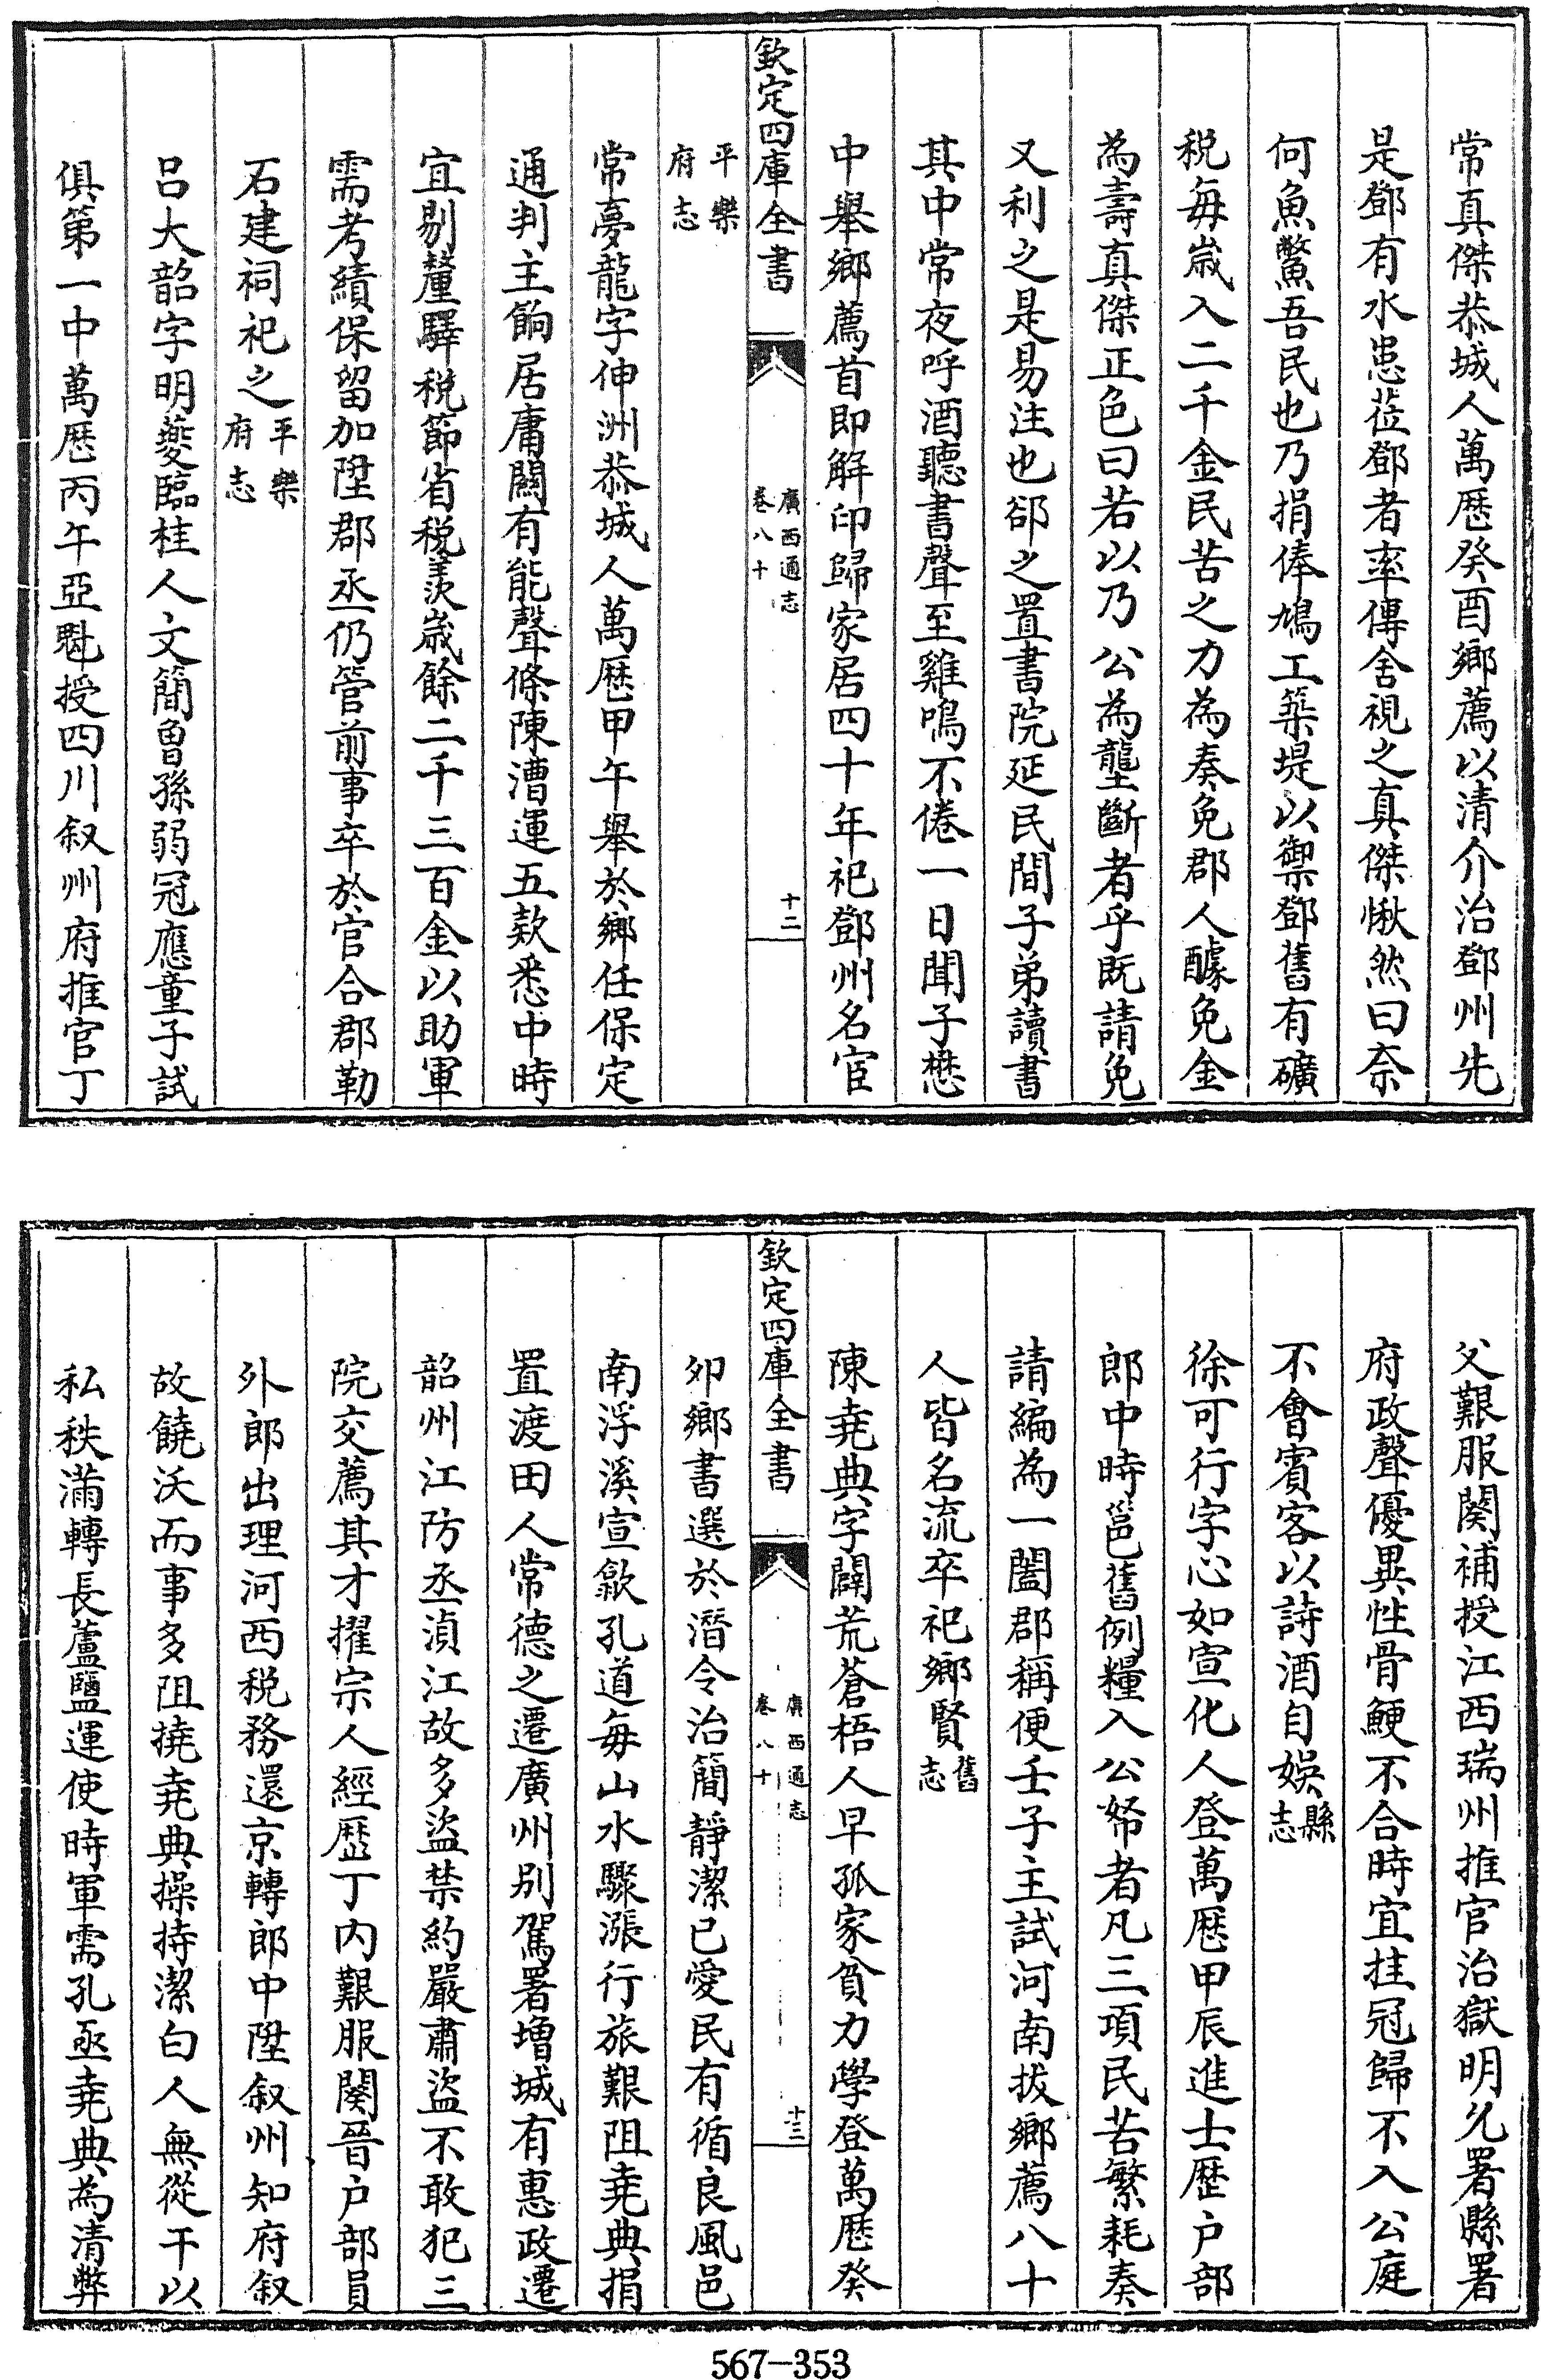 常真傑恭城人萬厯癸酉鄉薦以清介治鄧州先
是鄧有水患蒞鄧者率傳舍視之真傑愀然曰奈
何魚鱉吾民也乃捐俸鳩工築堤以禦鄧舊有礦
税每嵗入二千金民苦之力為奏免郡人醵免金
為壽真傑正色曰若以乃公為壟斷者乎既請免
又利之是易注也郤之置書院延民間子弟讀書
其中常夜呼酒聽書聲至雞鳴不倦一日聞子懋
中舉鄉薦首即解印歸家居四十年祀鄧州名宦
欽定四庫全書
廣西通志
卷八十
十二
平樂
府志
常夢龍字伸洲恭城人萬厯甲午舉於鄉任保定
通判主餉居庸闗有能聲條陳漕運五款悉中時
宜剔釐驛税節省税羡嵗餘二千三百金以助軍
需考績保留加陞郡丞仍管前事卒於官合郡勒
石建祠祀之平樂
府志
吕大韶字明夔臨桂人文簡曾孫弱冠應童子試
俱第一中萬厯丙午亞魁授四川叙州府推官丁
父艱服闋補授江西瑞州推官治獄明允署縣署
府政聲優異性骨鯁不合時宜挂冠歸不入公庭
不會賓客以詩酒自娱縣
志
徐可行字心如宣化人登萬厯甲辰進士歴户部
郎中時邕舊例糧入公帑者凡三項民苦繁耗奏
請編為一闔郡稱便壬子主試河南拔鄉薦八十
人皆名流卒祀鄉賢舊
志
陳堯典字闢荒蒼梧人早孤家貧力學登萬厯癸
欽定四庫全書
廣西通志
卷八十
十三
卯鄉書選於潛令治簡靜潔已愛民有循良風邑
南浮溪宣歙孔道每山水驟漲行旅艱阻堯典捐
置渡田人常德之遷廣州别駕署增城有惠政遷
韶州江防丞湞江故多盜禁約嚴肅盜不敢犯三
院交薦其才擢宗人經歴丁内艱服闋晉户部員
外郎出理河西税務還京轉郎中陞叙州知府叙
故饒沃而事多阻撓堯典操持潔白人無從干以
私秩滿轉長蘆鹽運使時軍需孔亟堯典為清弊
567-353